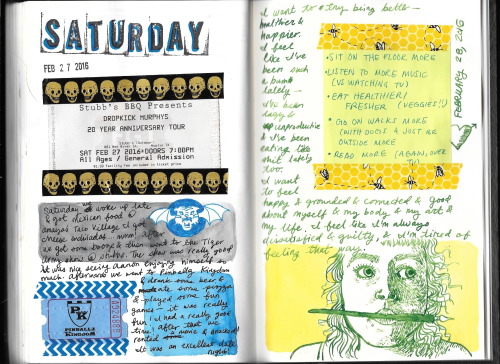 SATURDAY
FEB 27 2016
Stubb's BBQ Presents
DROPKICK MURPHYS
20 YEAR ANNIVERSARY TOUR
SAT FEB 27 2016•DOORS 7:00PM
All Ages / General Admission
Saturday we woke up late
& got mexican food @
Amayas Taco Village. I got
cheese enchiladas. mmm! after
we got some boogie & then went to the Tiger
show @ studios. The show was really good
it was nice seeing aaron enjoying himself so
much. afterwards we went to Pinballz Kingdom
& drank some beer &
ate some pizza
& played some fun
games. it was really
fun. I had a really good
time! after that we
rented a movie & 
It was an excellent date
night!
PK
PINBALLZ
KINGDOM
I want to try being better—
healthier &
happier.
I feel
like I've
been such
a bump
lately—
I've been
lazy &
unproductive
& I've been
eating like
shit lately
too.
I want
to feel
happy & grounded & connected & good
about myself & my body & my art &
my life. I feel like I'm always
dissatisfied & guilty, & I'm tired of
feeling that way.
• SIT ON THE FLOOR MORE
• LISTEN TO MORE MUSIC
(VS WATCHING TV)
• EAT HEALTHIER/
FRESHER (VEGGIES!)
• GO ON WALKS MORE
(WITH DOGS & JUST BE
OUTSIDE MORE
• READ MORE (AGAIN, OVER
TV)
FEBRUARY 28, 2016